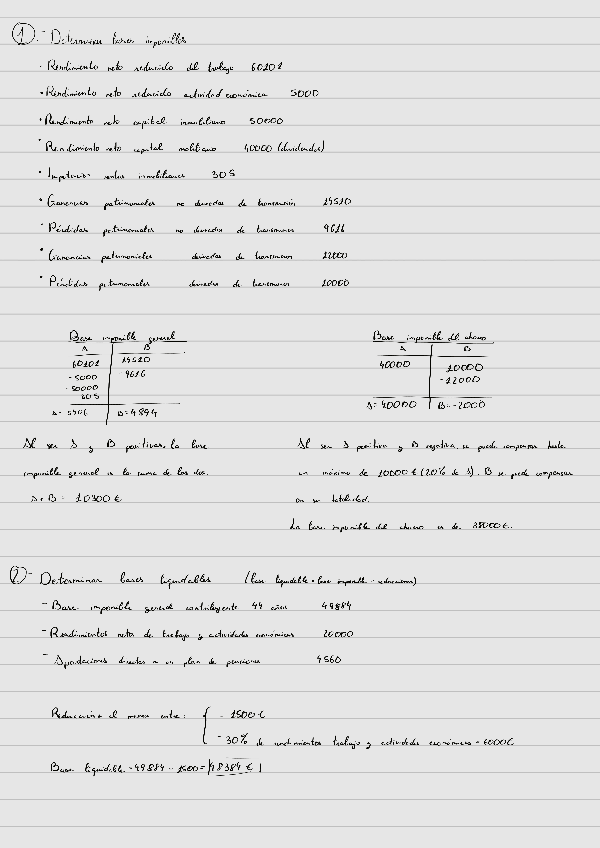 ① - Determinar bases imponibles
· Rendimiento neto reducido del trabajo 60101
· Rendimiento neto reducido actividad económica 5000
· Rendimiento neto capital inmobiliario 50000
· Rendimiento neto capital mobiliario 40000 (dividendos)
· Imputación rentas inmobiliarias 305
· Ganancias patrimoniales no derivadas de transmisión 14510
· Pérdidas patrimoniales no derivadas de transmisiones 9616
· Ganancias patrimoniales derivadas de transmisiones
· Pérdidas patrimoniales derivadas de transmisiones 10000
Base imponible general
A B
60101 14510
-5000 -9616
-50000
305
A= 5406 B=4894
Al ser A y B positivas, la base
imponible general es la suma de las dos.
A+B= 10300 €
Base imponible del ahorro
A B
40000 10000
-12000
A=40000 B=-2000
Al ser A positiva y B negativa, se puede compensar hasta
un máximo de 10000 € (20% de A). B se puede compensar
en su totalidad.
La base imponible del ahorro es de 38000 €.
② - Determinar bases liquidables (base liquidable = base imponible - reducciones)
- Base imponible general contribuyente 44 años 49884
- Rendimientos netos de trabajo y actividades económicas 20000
- Aportaciones directas a un plan de pensiones 4560
Reducción el menor entre: - 1500 €
- 30% de rendimientos trabajo y actividades económicas = 6000€
Base liquidable = 49884 - 1500 = 48384 €